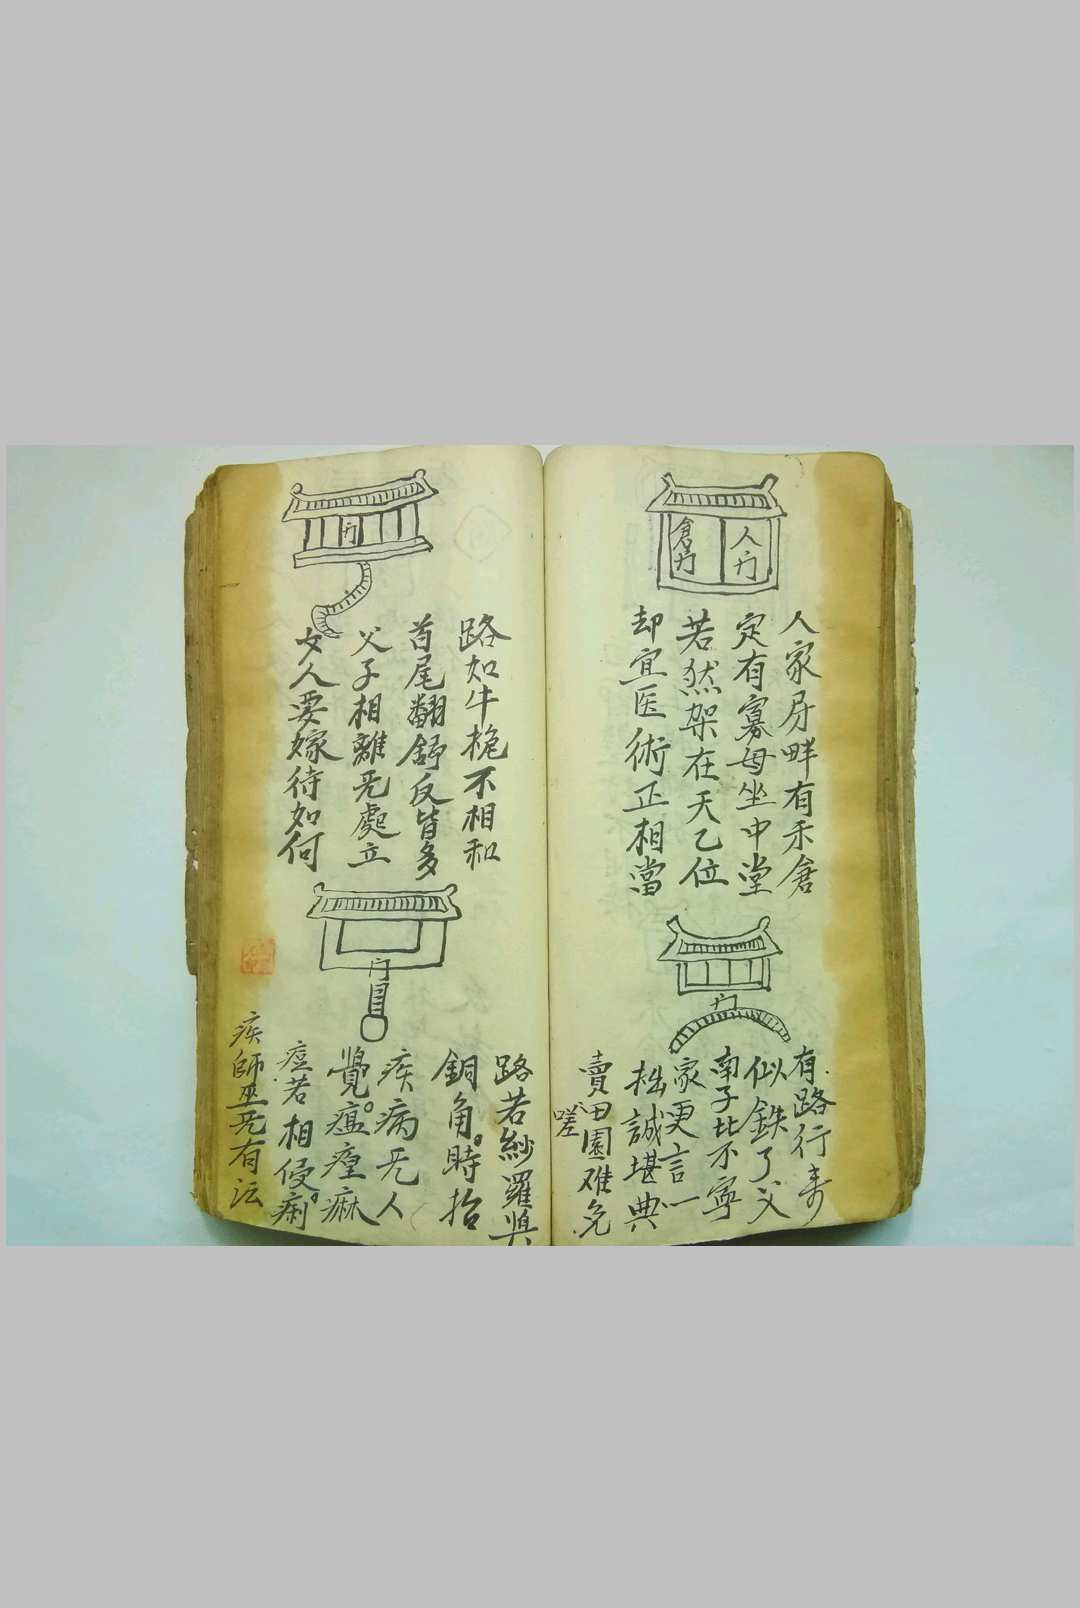 倉门
人门
人家房畔有禾倉
定有寡母坐中堂
若然架在天乙位
却宜医術正相當
门
有路行来
似鉄了父
南子比不寧
家更言一
拙誠堪典
賣田園难免
嗟
门
路如牛桅不相和
首尾翻舒反皆多
父子相離无處立
女人要嫁待如何
门
路若紗羅與
銅角。時抬
疾病无人
覺。瘟瘴麻
痘若相侵痢。
疾師巫无有法